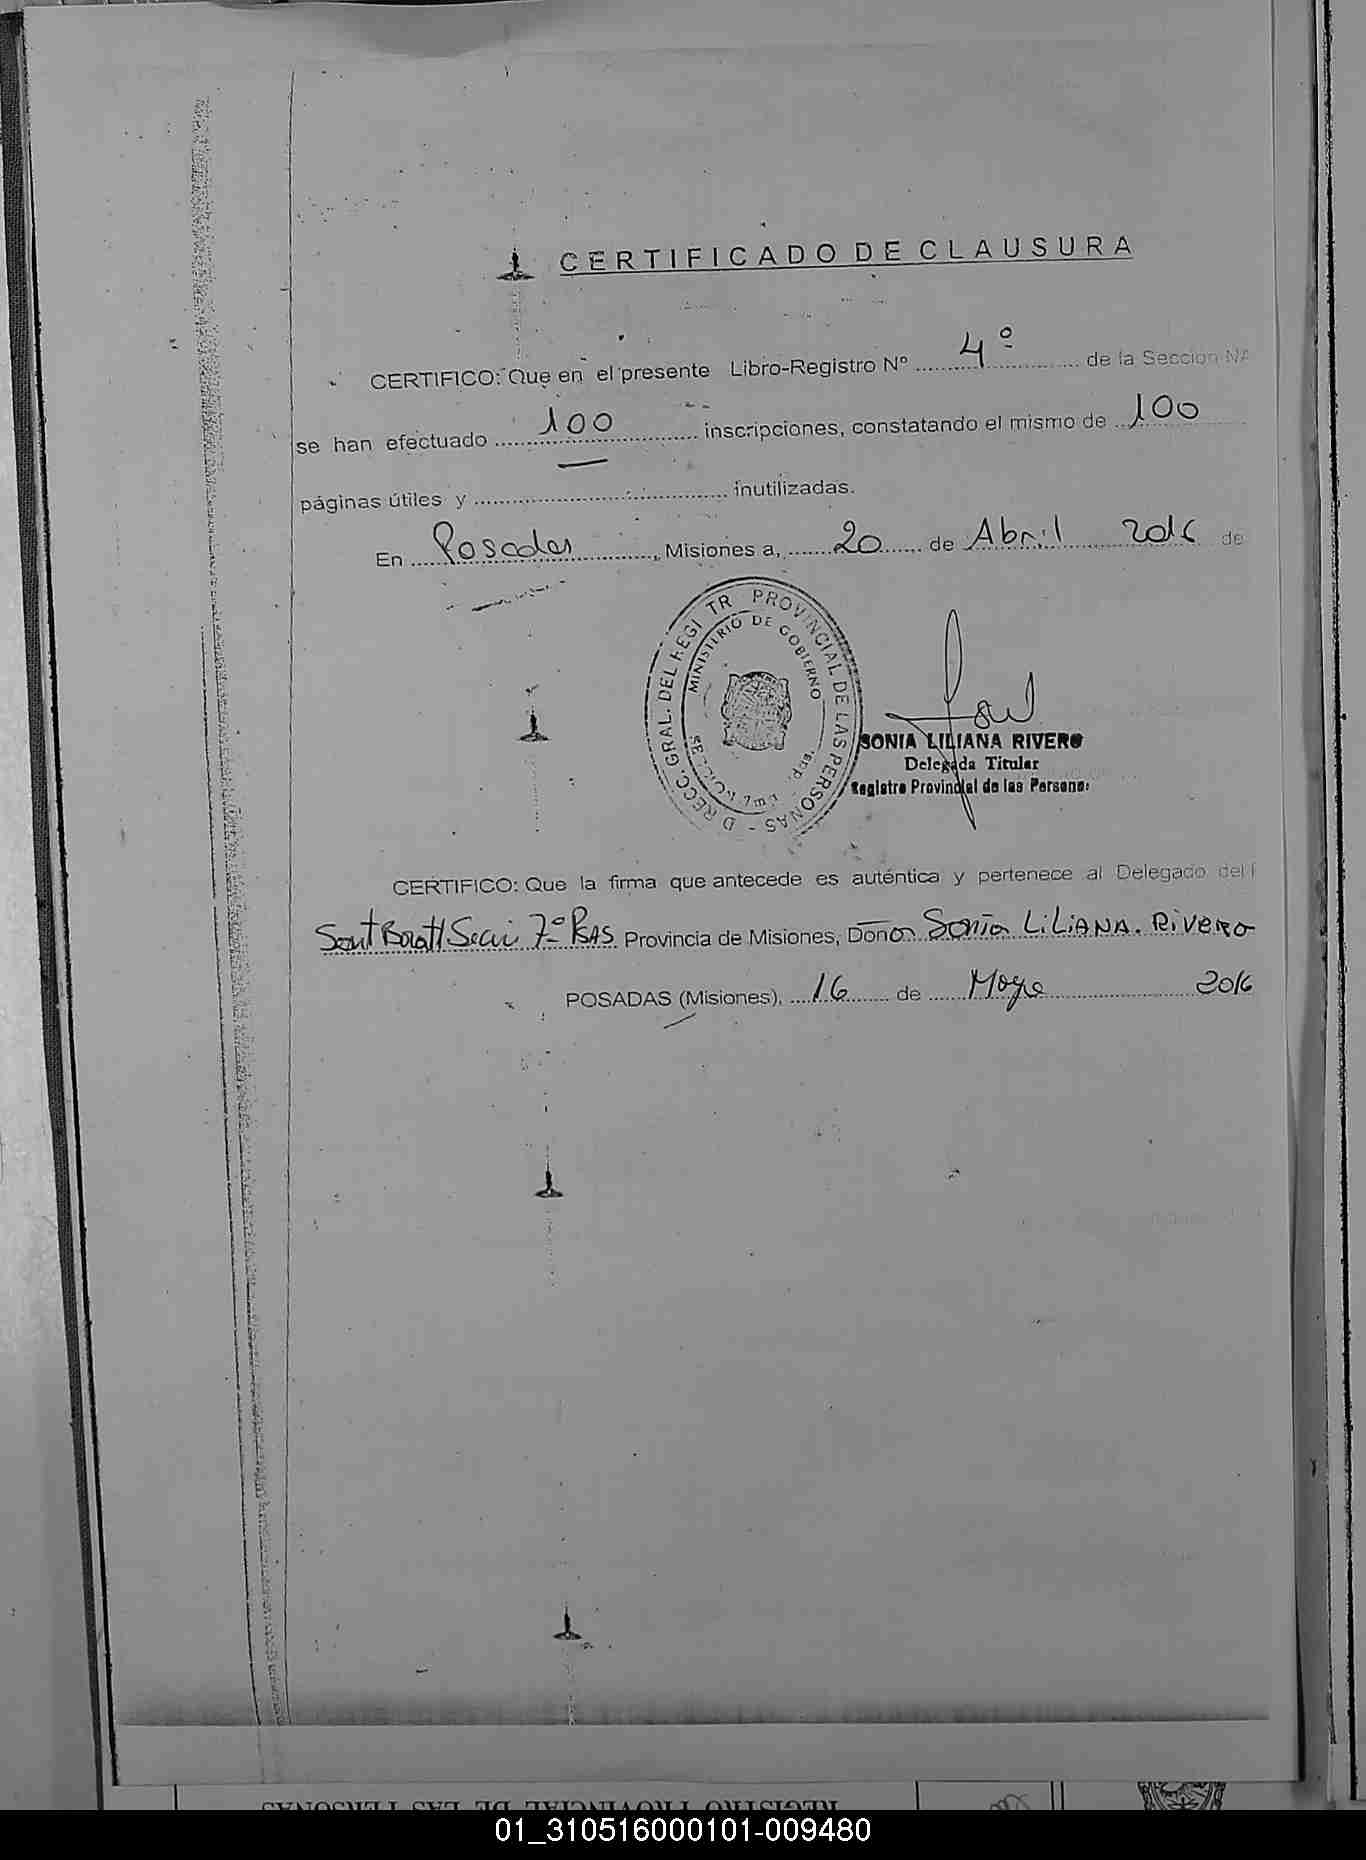 CERTIFICADO DE CLAUSURA
CERTIFICO: Que en el presente Libro-Registro Nº 4º de la Sección NA
se han efectuado 100 inscripciones, constatando el mismo de 100
páginas útiles y inutilizadas.
En Posadas, Misiones a, 20 de Abril 2016 de
PROVINCIAL DE LAS PERSONAS - D RECC. GRAL. DEL REGI TR
MINISTERIO DE GOBIERNO
SONIA LILIANA RIVERO
Delegada Titular
Registro Provincial de las Personas
CERTIFICO: Que la firma que antecede es auténtica y pertenece al Delegado del
7º Provincia de Misiones, Doña Sonia LiLiANA. RiVERO
POSADAS (Misiones), 16 de Mayo 2016
REGISTRO PROVINCIAL DE LAS PERSONAS
01_310516000101-009480